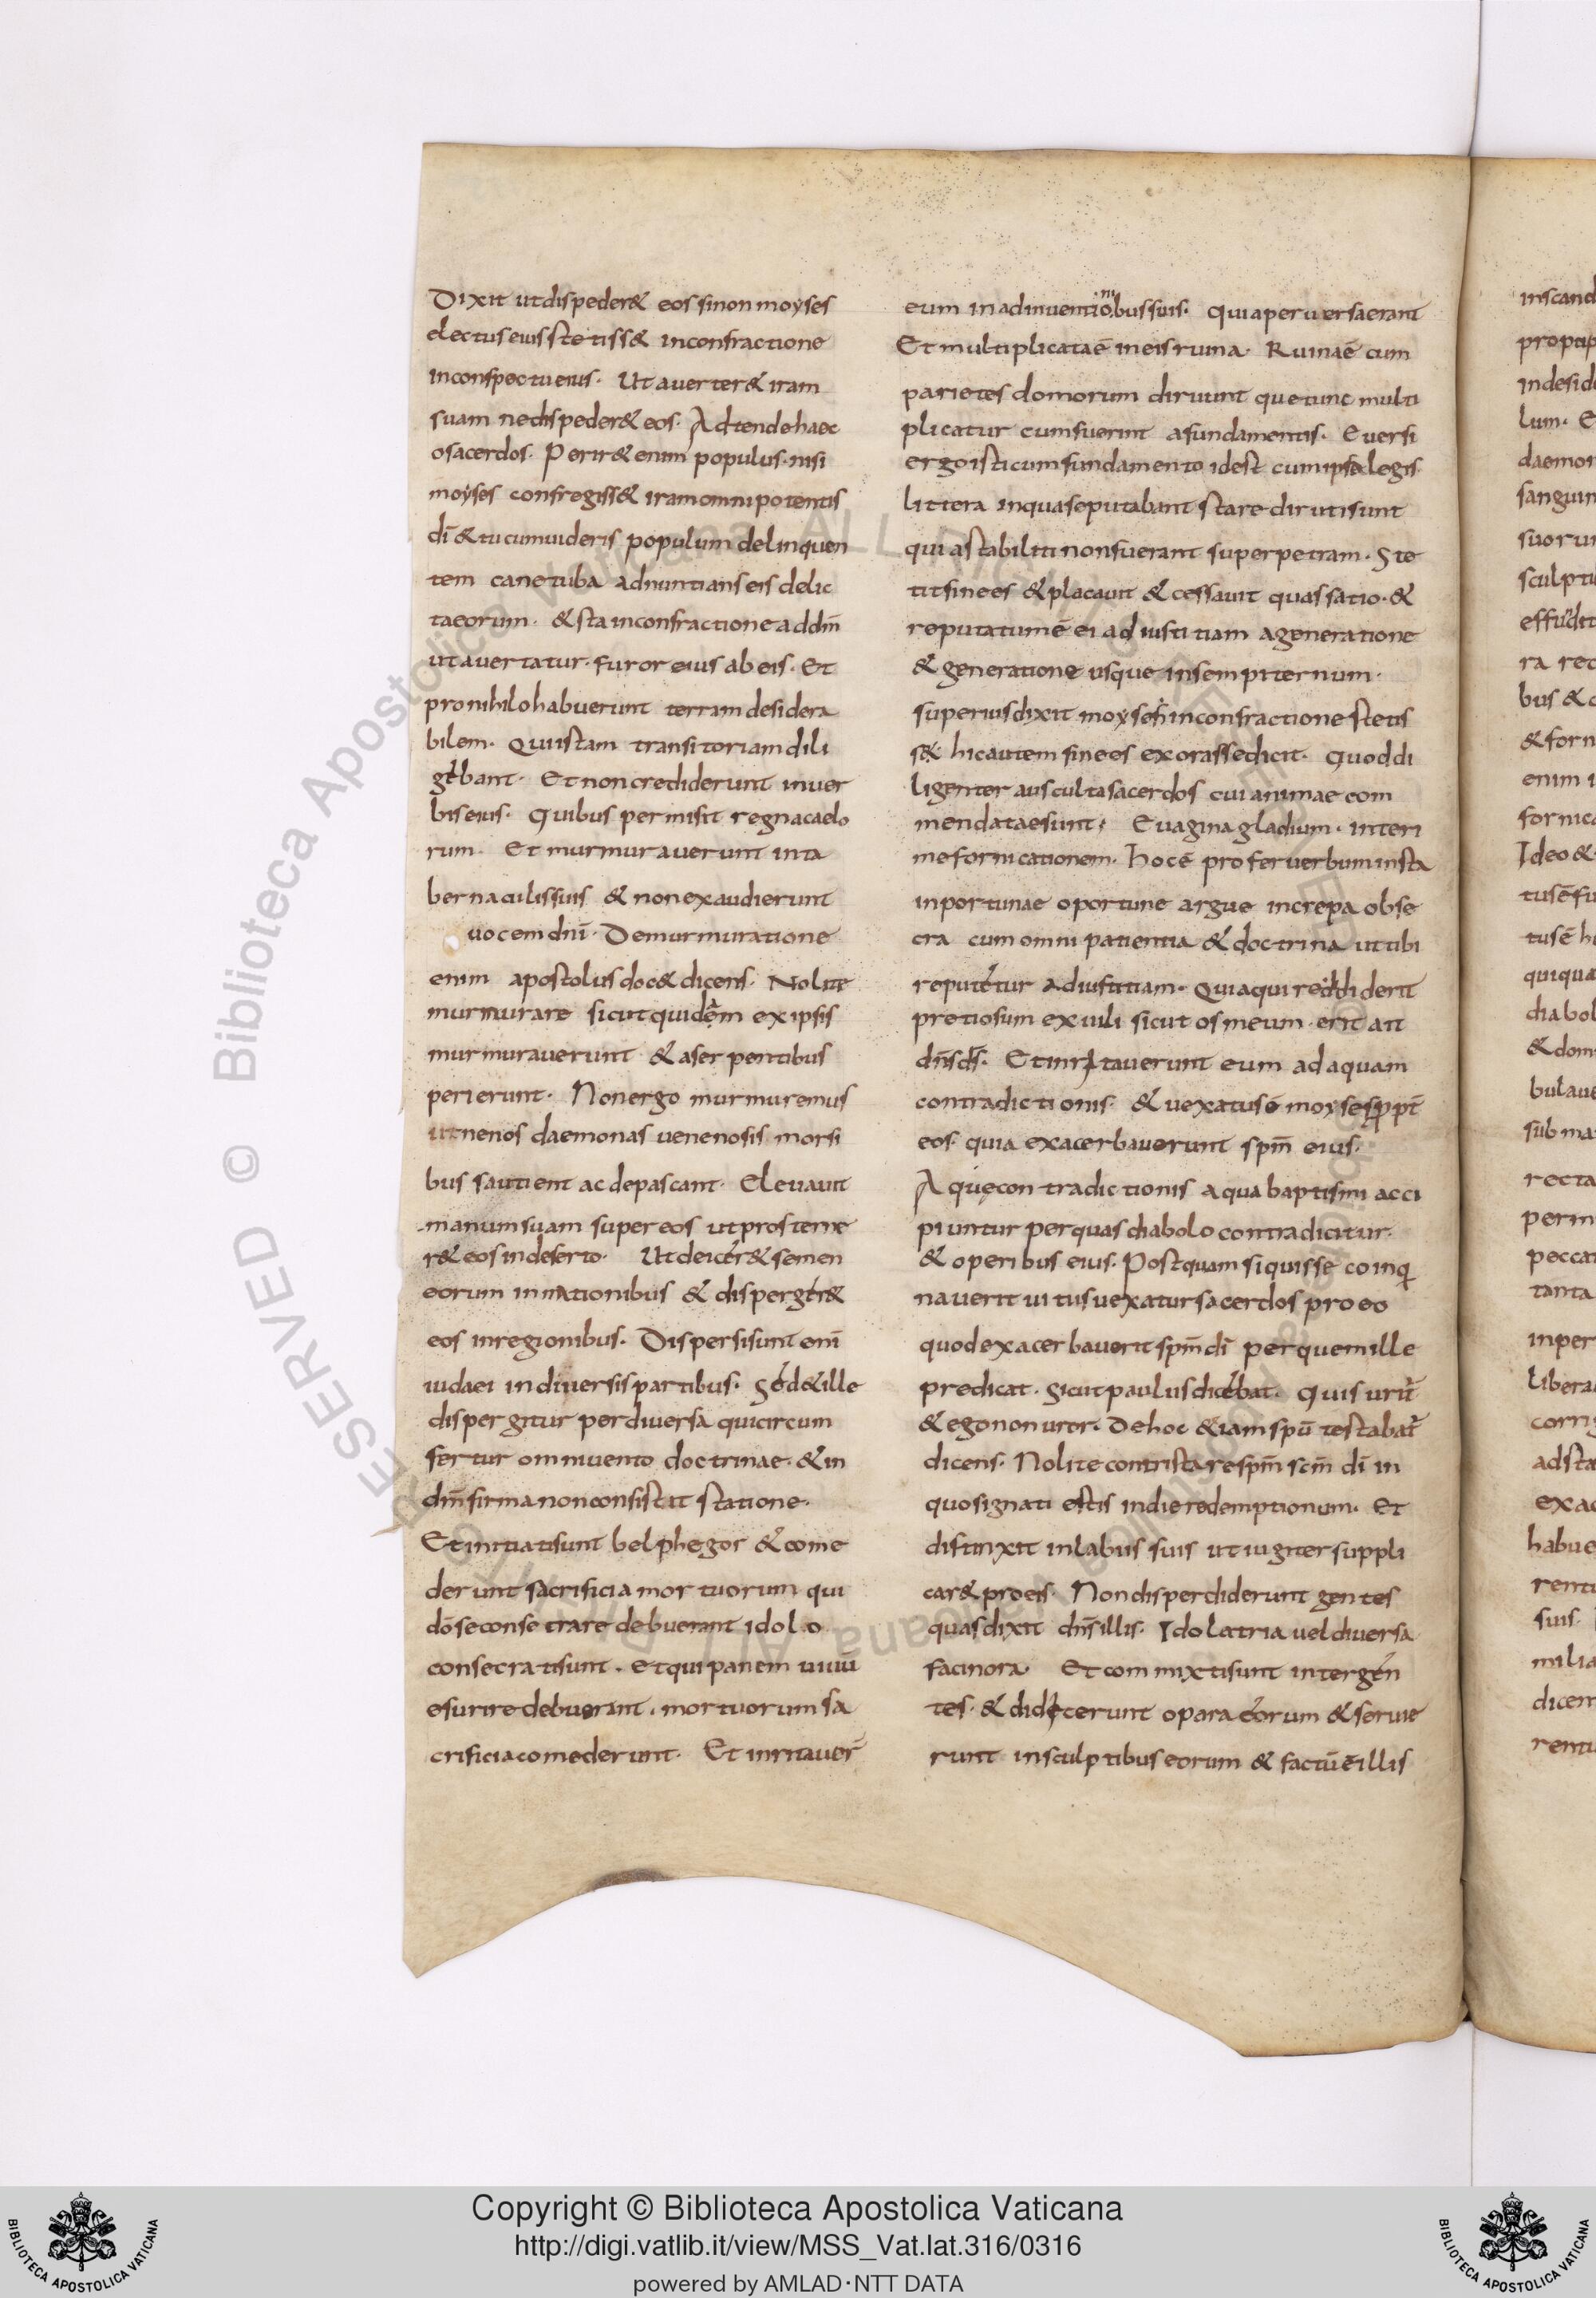 Dixit ut dispeder& eos si non moyses
electus eius stetiss& in confractione
in conspectu eius. Ut auerter& iram
suam ne dispeder& eos. Adtende haec
o sacerdos. Perir& enim populus. nisi
moyses confregiss& iram omnipotentis
dī & tu cum uideris populum delinquen
tem cane tuba adnuntians eis delic
ta eorum. & sta in confractione ad dn̄m
ut auertatur. furor eius ab eis. Et
pro nihilo habuerunt terram desidera
bilem. Qui istam transitoriam dili
gebant. Et non crediderunt in uer
bis eius. Quibus permisit regna caelo
rum. Et murmurauerunt in ta
bernaculis suis & non exaudierunt
uocem dn̄i. De murmuratione
enim apostolus doc& dicens. Nolite
murmurare sicut quidam ex ipsis
murmurauerunt & a serpentibus
perierunt. Non ergo murmuremus
ut ne nos daemonas uenenosis morsi
bus sautient ac depascant. Eleuauit
manum suam super eos ut prosterne
r& eos in deserto. Ut deicer& semen
eorum in nationibus & disperger&
eos in regionibus. Dispersi sunt enī
iudaei in diuersis partibus. Sed & ille
dispergitur per diuersa qui circum
fertur omni uento doctrinae. & in
dn̄m firma non consistat statione.
Et initiati sunt belphegor & come
derunt sacrificia mortuorum qui
dō se consecrare debuerant idolo
consecrati sunt. Et qui panem uiuū
esurire debuerant. mortuorum sa
crificia comederunt. Et inritauer̄
eum in adinuentionibus suis. quia peruersa erant
Et multiplicata ē in eis ruina. Ruina ē cum
parietes domorum diruunt que tunc multi
plicatur cum fuerint a fundamentis. Euersi
ergo isti cum fundamento id est cum ipsa legis
littera in qua se putabant stare diruti sunt
quia stabiliti non fuerant super petram. Ste
tit finees & placauit & cessauit quassatio. &
reputatum ē ei ad iustitiam a generatione
& generatione usque in sempiternum.
superius dixit moysen in confractione stetis
s& hic autem finees exorasse dicit. Quod di
ligenter ausculta sacerdos cui animae com
mendatae sunt. Euagina gladium. interi
me fornicationem. hoc ē profer uerbum insta
inportunae oportune argue increpa obse
cra cum omni patientia & doctrina ut tibi
reputetur ad iustitiam. Quia qui reddiderit
pretiosum ex uili sicut os meum erit ait
dn̄s ds̄. Et inritauerunt eum ad aquam
contradictionis. & uexatus ē moyses ppt̄
eos. quia exacerbauerunt spm̄ eius.
Aquę contradictionis aqua baptismi acci
piuntur per quas diabolo contradicitur.
& operibus eius. Postquam si quis se coinqi
nauerit uitus uexatur sacerdos pro eo
quod exacerbauerit spm̄ dī per quem ille
predicat. Sicut paulus dicebat. Quis urit̄
& ego non uror. De hoc &iam spū testabat̄
dicens. Nolite contristare spm̄ scm̄ dī in
quo signati estis in die redemptionum. Et
distinxit in labiis suis ut iugiter suppli
car& pro eis. Non disperdiderunt gentes
quas dixit dn̄s illis. Idolatria uel diuersa
facinora. Et commixti sunt inter gen
tes. & didicerunt opara eorum & seruie
runt insculptibus eorum & factū ē illis